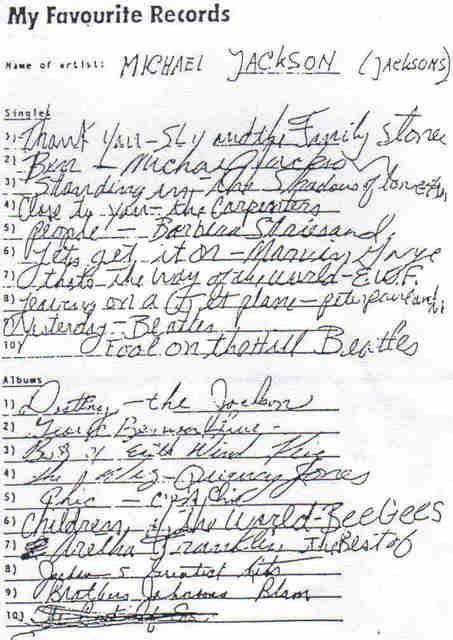 My Favourite Records
Name of artist: MICHAEL JACKSON (JACKSONS)
Singles
1) Thank You - Sly and the Family Stone
2) Ben - Michael Jackson
3) Standing in the Shadows of love
4) Close to you - the Carpenters
5) People - Barbra Streisand
6) Lets get it on - Marvin Gaye
7) thats the way of the world - E.W.F.
8) leaving on a jet plane - peter paul and
Yesterday - Beatles
10) Fool on the Hill Beatles
Albums
1) Destiny - the Jacksons
2)
3) Earth Wind Fire
4) the Wiz - Quincy Jones
5) Chic - C'est Chic
6) Children of the World - BeeGees
7) Aretha Franklin The Best of
8) Jackson 5 Greatest Hits
9) Brothers Johnsons Blam
10)